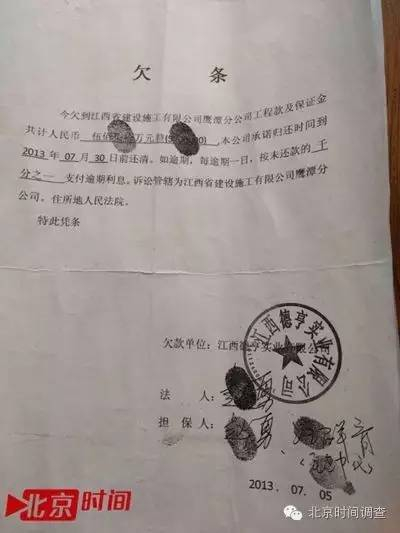 欠 条
今欠到江西省建设施工有限公司鹰潭分公司工程款及保证金
共计人民币 伍佰 万元整( 0),本公司承诺归还时间到
2013年 07 月 30 日前还清。如逾期,每逾期一日,按未还款的 千
分之一 支付逾期利息。诉讼管辖为江西省建设施工有限公司鹰潭分
公司。住所地人民法院。
特此凭条
江西德亨实业有限公司
欠款单位:江西德亨实业有限公司
法 人: 勇
担 保 人: 勇、
2013. 07. 05
北京时间
北京时间调查